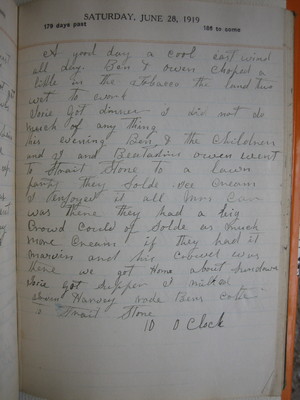 SATURDAY, JUNE 28, 1919
179 days past
186 to come
A good day a cool east wind
all day. Ben & Owen choped a
little in the tobacco the land two
wet to work
Josie Got dinner I did not do
much of any thing
this evening Ben & the Children
and I and Owen went
to Strait Stone to a lawn
party they Solds ice Cream
I enjoyed it all Mrs Carr
was there they had a big
Crowd Could of Solde as much
more Cream if they had it
Marvin and his Crowd was
there we got Home about sundown
Josie got supper I milked
Harvey rode Bens Colt
to Strait Stone
10 O Clock